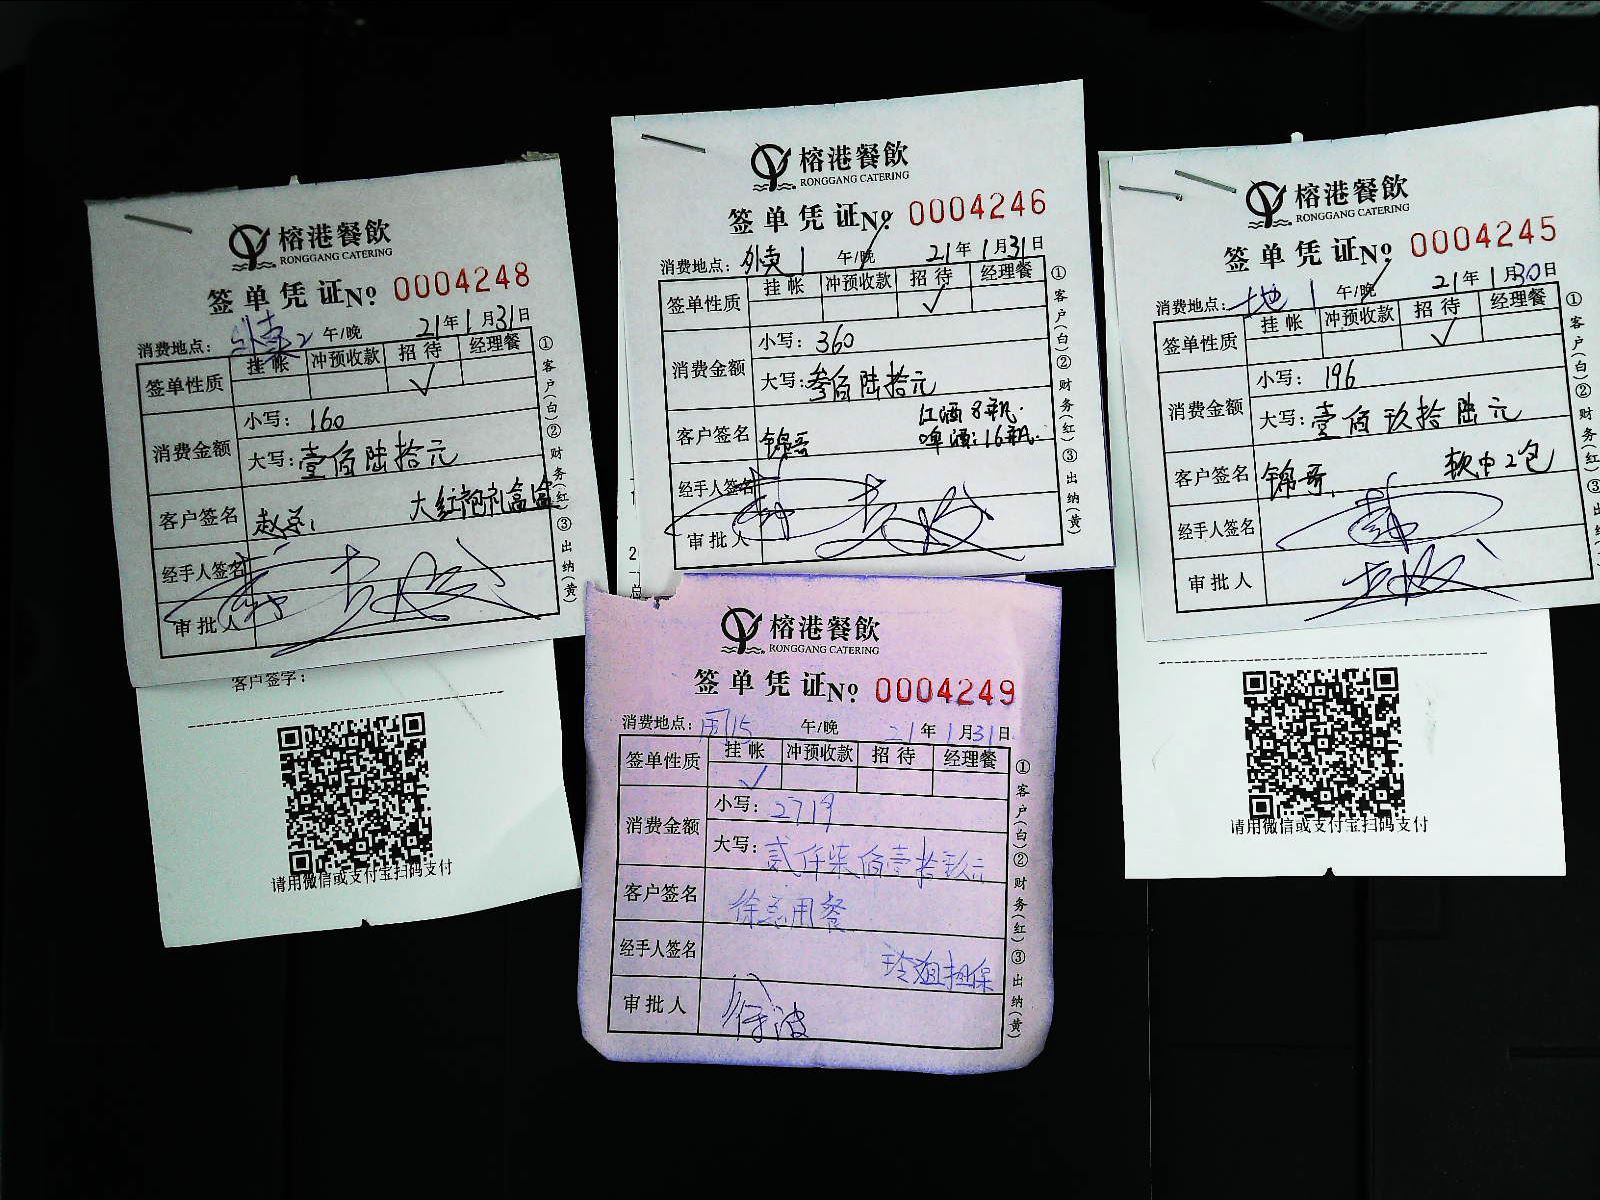 榕港餐飲
RONGGANG CATERING
签单凭证No 0004248
消费地点：外卖2 午/晚 21年1月31日
签单性质 挂帐 冲预收款 招待 经理餐
✓
消费金额 小写：160
大写：壹佰陆拾元
客户签名 赵总 大红袍礼盒
经手人签名
审批人
①客户(白)②财务(红)③出纳(黄)
客户签字：
请用微信或支付宝扫码支付
榕港餐飲
RONGGANG CATERING
签单凭证No 0004246
消费地点：外卖1 午/晚 21年1月31日
签单性质 挂帐 冲预收款 招待 经理餐
✓
消费金额 小写：360
大写：叁佰陆拾元
客户签名 锦哥 红酒8瓶
啤酒：16瓶
经手人签名
审批人
①客户(白)②财务(红)③出纳(黄)
榕港餐飲
RONGGANG CATERING
签单凭证No 0004245
消费地点：土地1 午/晚 21年1月30日
签单性质 挂帐 冲预收款 招待 经理餐
✓
消费金额 小写：196
大写：壹佰玖拾陆元
客户签名 锦哥 软中2包
经手人签名
审批人
①客户(白)②财务(红)③出纳
请用微信或支付宝扫码支付
榕港餐飲
RONGGANG CATERING
签单凭证No 0004249
消费地点： 午/晚 21年1月31日
签单性质 挂帐 冲预收款 招待 经理餐
✓
消费金额 小写：2719
大写：贰仟柒佰壹拾玖元
客户签名 徐总用餐
经手人签名 玲姐担保
审批人 徐波
①客户(白)②财务(红)③出纳(黄)